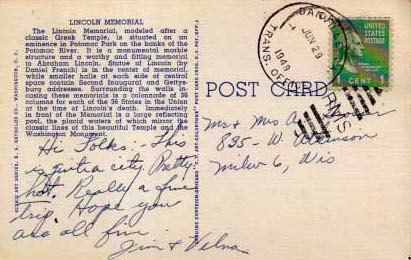 LINCOLN MEMORIAL
The Lincoln Memorial, modeled after a
classic Greek Temple, is situated on an
eminence in Potomac Park on the banks of the
Potomac River. It is a monumental marble
structure and a worthy and fitting memorial
to Abraham Lincoln. Statue of Lincoln (by
Daniel French) is in the center of memorial
while smaller halls at each side of central
space contain Second Inaugural and Gettys-
burg addresses. Surrounding the walls in-
closing these memorials is a colonnade of 36
columns for each of the 36 States in the Union
at the time of Lincoln's death. Immediately
in front of the Memorial is a large reflecting
pool, the placid waters of which mirror the
classic lines of this beautiful Temple and the
Washington Monument.
Hi Folks: This
is quite a city. Pretty
hot. Really a fine
trip. Hope you
are all fine.
Jim & Velma
POST CARD
Mr & Mrs A.
835-W.
Milw 6, Wis
TRANS. OFFICE
JUN 29
1948
RMS
UNITED STATES POSTAGE
1 CENT 1